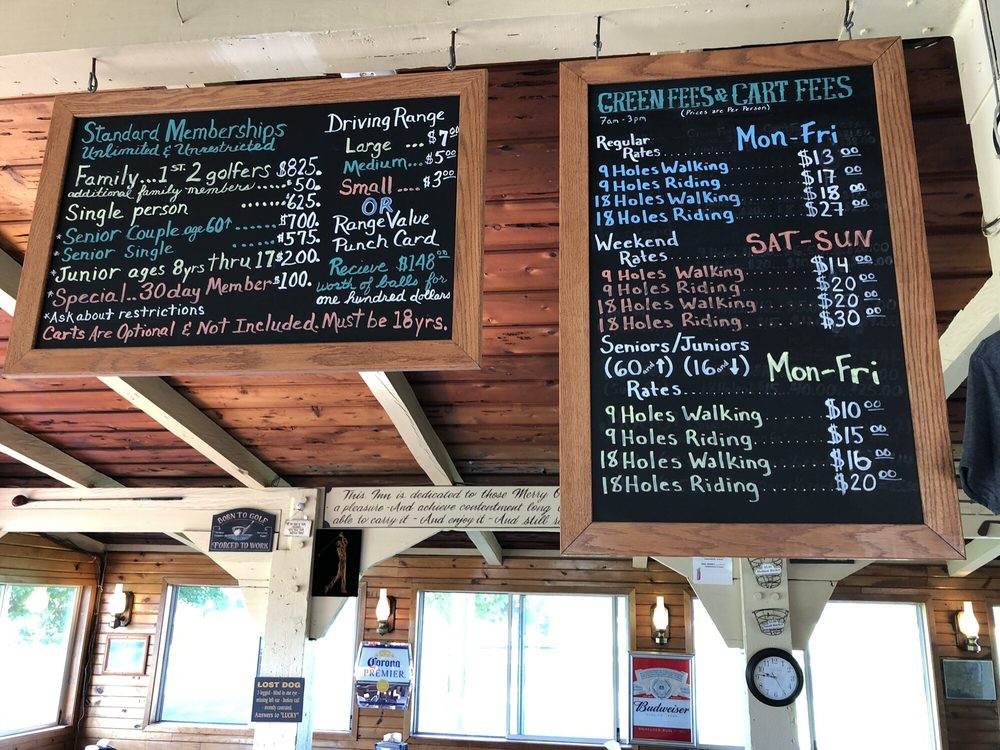 Standard Memberships
Unlimited & Unrestricted
Family...1ST 2 golfers $825.
additional family members.....$50.
Single person .......$625.
*Senior Couple age 60↑ ......$700.
*Senior Single ......$575.
*Junior ages 8yrs thru 17 $200.
*Special..30 day Member $100.
*Ask about restrictions
Carts Are Optional & Not Included. Must be 18yrs.
Driving Range
Large ... $7.00
Medium... $5.00
Small .... $3.00
OR
Range Value
Punch Card
Recieve $148.00
worth of balls for
one hundred dollars
GREEN FEES & CART FEES
(Prices are Per Person)
7am - 3pm
Regular
Rates
Mon-Fri
9 Holes Walking $13.00
9 Holes Riding $17.00
18 Holes Walking $18.00
18 Holes Riding $27.00
Weekend
Rates
SAT-SUN
9 Holes Walking $14.00
9 Holes Riding $20.00
18 Holes Walking $20.00
18 Holes Riding $30.00
Seniors/Juniors
(60 and ↑) (16 and ↓)
Rates
Mon-Fri
9 Holes Walking $10.00
9 Holes Riding $15.00
18 Holes Walking $16.00
18 Holes Riding $20.00
This Inn is dedicated to those Merry
a pleasure - And achieve contentment long
able to carry it - And enjoy it - And still
BORN TO GOLF
FORCED TO WORK
Corona
PREMIER
LOST DOG
3 legged - blind in one eye
missing left ear - broken tail
recently castrated
Answers to "LUCKY"
Budweiser